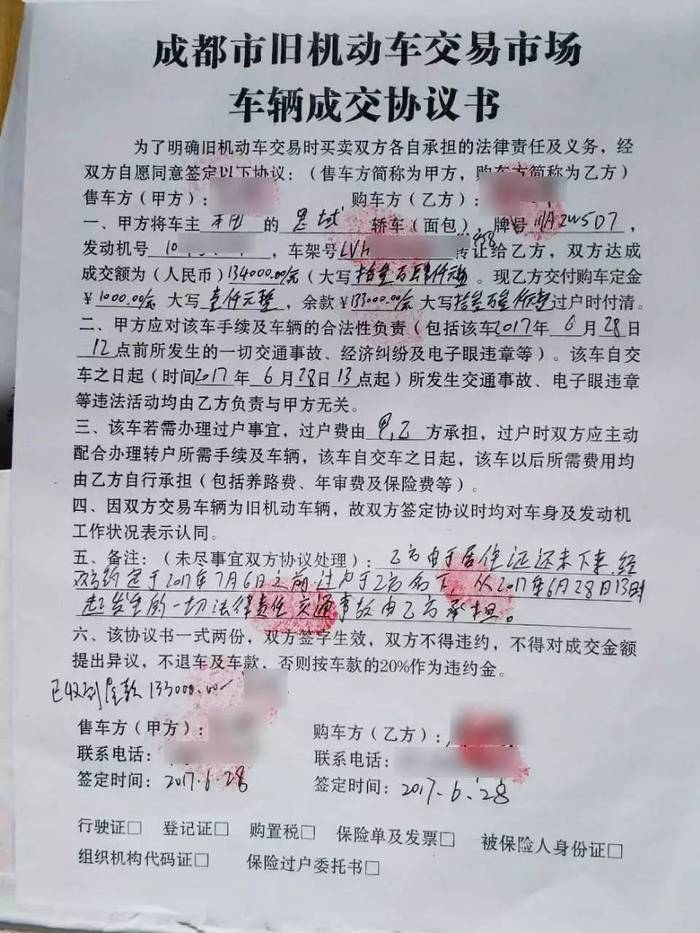 成都市旧机动车交易市场
车辆成交协议书
为了明确旧机动车交易时买卖双方各自承担的法律责任及义务，经
双方自愿同意签定以下协议：（售车方简称为甲方，购车方简称为乙方）
售车方（甲方）： 购车方（乙方）：
一、甲方将车主 的 思域 轿车（面包），牌号 川A2W5D7，
发动机号 10 ，车架号 LVH 转让给乙方，双方达成
成交额为（人民币）134000.00元（大写拾叁万肆仟元整。现乙方交付购车定金
￥1000.00元 大写 壹仟元整，余款￥133000.00元 大写拾叁万叁仟元整过户时付清。
二、甲方应对该车手续及车辆的合法性负责（包括该车2017年 6 月 28 日
12 点前所发生的一切交通事故、经济纠纷及电子眼违章等）。该车自交
车之日起（时间2017 年 6 月 28 日 13 点起）所发生交通事故、电子眼违章
等违法活动均由乙方负责与甲方无关。
三、该车若需办理过户事宜，过户费由 甲,乙 方承担，过户时双方应主动
配合办理转户所需手续及车辆，该车自交车之日起，该车以后所需费用均
由乙方自行承担（包括养路费、年审费及保险费等）。
四、因双方交易车辆为旧机动车辆，故双方签定协议时均对车身及发动机
工作状况表示认同。
五、备注：（未尽事宜双方协议处理）：乙方由于居住证还未下来，经
双方约定于2017年7月6日之前过户于乙方名下，从2017年6月28日13时
起发生的一切法律责任交通事故由乙方承担。
六、该协议书一式两份，双方签字生效，双方不得违约，不得对成交金额
提出异议，不退车及车款，否则按车款的20%作为违约金。
已收到全款 133000.00
售车方（甲方）： 购车方（乙方）：
联系电话： 联系电话：
签定时间：2017.6.28 签定时间：2017.6.28
行驶证□ 登记证□ 购置税□ 保险单及发票□ 被保险人身份证□
组织机构代码证□ 保险过户委托书□